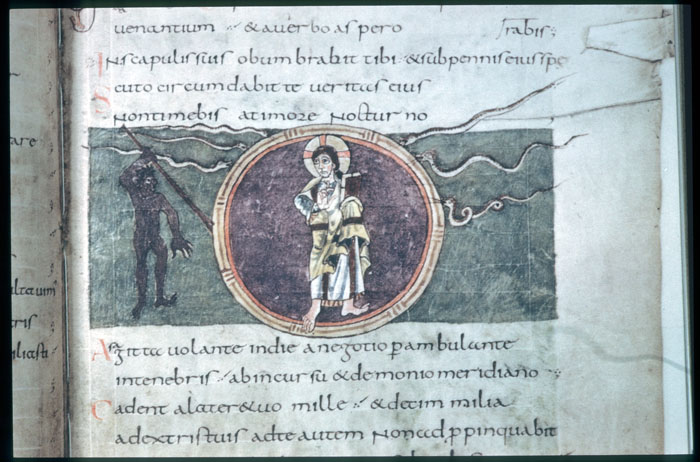 uenantium · & auerbo aspero
rabis:
Inscapulissuis obumbrabit tibi · &subpenniseiusspe
Scuto circumdabit te ueritas eius
Nontimebis atimore Nocturno
Asgitta uolante indie anegotio pambulante
intenebris · abincursu &demonio meridiano
Cadent mille · &decim milia
adextristuis adte autem